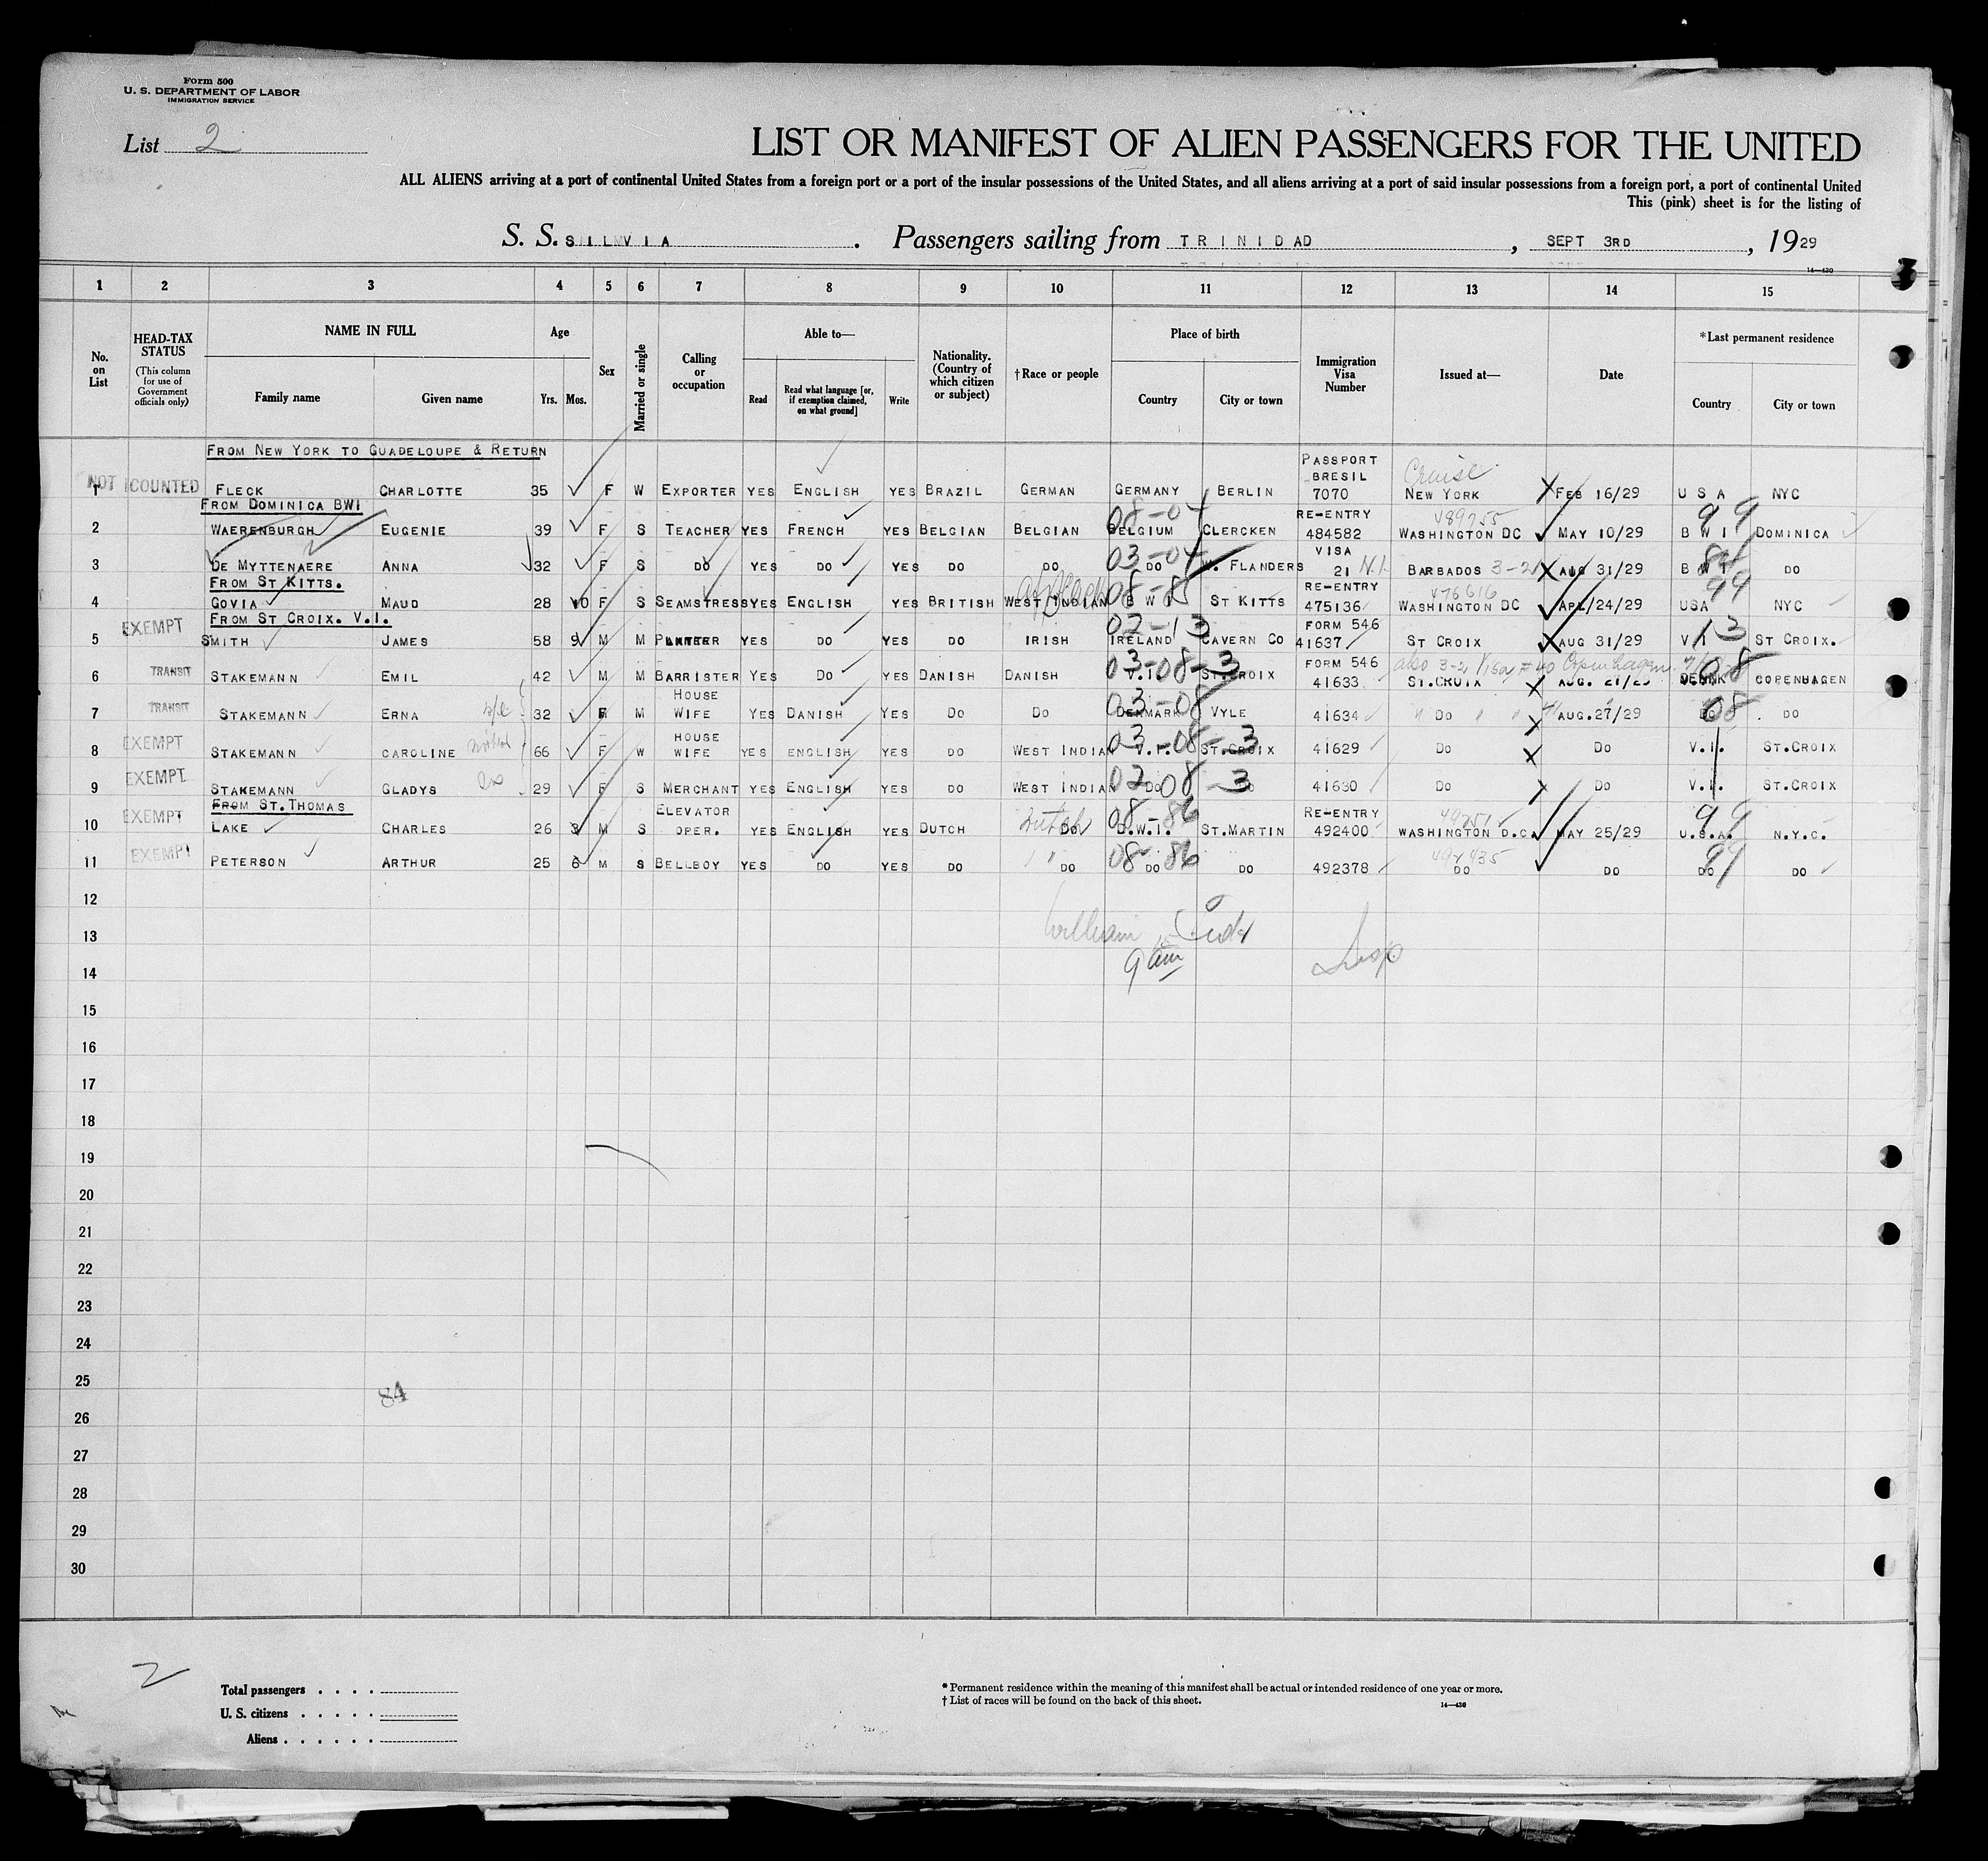 Form 500
U. S. DEPARTMENT OF LABOR
IMMIGRATION SERVICE
List 2
LIST OR MANIFEST OF ALIEN PASSENGERS FOR THE UNITED
ALL ALIENS arriving at a port of continental United States from a foreign port or a port of the insular possessions of the United States, and all aliens arriving at a port of said insular possessions from a foreign port, a port of continental United
This (pink) sheet is for the listing of
S. S. SILVIA . Passengers sailing from TRINIDAD , SEPT 3RD , 1929
14—430
1 2 3 4 5 6 7 8 9 10 11 12 13 14 15
No. on List
HEAD-TAX STATUS (This column for use of Government officials only)
NAME IN FULL Family name Given name
Age Yrs. Mos.
Sex
Married or single
Calling or occupation
Able to— Read Read what language [or, if exemption claimed, on what ground] Write
Nationality. (Country of which citizen or subject)
†Race or people
Place of birth Country City or town
Immigration Visa Number
Issued at—
Date
*Last permanent residence Country City or town
FROM NEW YORK TO GUADELOUPE & RETURN
PASSPORT BRESIL Cruise
1 NOT COUNTED FLECK CHARLOTTE 35 F W EXPORTER YES ENGLISH YES BRAZIL GERMAN GERMANY BERLIN 7070 NEW YORK FEB 16/29 U S A NYC
FROM DOMINICA BWI
08-04 RE-ENTRY 489755 99
2 WAERENBURGH EUGENIE 39 F S TEACHER YES FRENCH YES BELGIAN BELGIAN BELGIUM CLERCKEN 484582 WASHINGTON DC MAY 10/29 B W I DOMINICA
03-04 VISA
3 DE MYTTENAERE ANNA 32 F S DO YES DO YES DO DO DO W. FLANDERS 21 N.I. BARBADOS 3-21 AUG 31/29 B W I DO
FROM ST KITTS.
08-85 RE-ENTRY 476616 99
4 GOVIA MAUD 28 10 F S SEAMSTRESS YES ENGLISH YES BRITISH WEST INDIAN B W I ST KITTS 475136 WASHINGTON DC APL/24/29 USA NYC
FROM ST CROIX. V.I.
02-13 FORM 546 13
5 EXEMPT SMITH JAMES 58 9 M M PLANTER YES DO YES DO IRISH IRELAND CAVERN CO 41637 ST CROIX AUG 31/29 V I ST CROIX.
03-08-3 FORM 546 also 3-2 Visa #40 Copenhagen 08
6 TRANSIT STAKEMANN EMIL 42 M M BARRISTER YES DO YES DANISH DANISH V.I. ST.CROIX 41633 ST.CROIX AUG. 21/29 DENMK COPENHAGEN
03-08 08
7 TRANSIT STAKEMANN ERNA 32 F M HOUSE WIFE YES DANISH YES DO DO DENMARK VYLE 41634 DO AUG.27/29 DO DO
03-08-3
8 EXEMPT STAKEMANN CAROLINE 66 F W HOUSE WIFE YES ENGLISH YES DO WEST INDIAN V.I. ST.CROIX 41629 DO DO V.I. ST.CROIX
02 08-3
9 EXEMPT STAKEMANN GLADYS 29 F S MERCHANT YES ENGLISH YES DO WEST INDIAN DO DO 41630 DO DO V.I. ST.CROIX
FROM ST.THOMAS
Dutch 08-86 RE-ENTRY 99
10 EXEMPT LAKE CHARLES 26 3 M S ELEVATOR OPER. YES ENGLISH YES DUTCH DO D.W.I. ST.MARTIN 492400 WASHINGTON D.C. MAY 25/29 U.S.A. N.Y.C.
08 86 99
11 EXEMPT PETERSON ARTHUR 25 6 M S BELLBOY YES DO YES DO DO DO DO 492378 DO DO DO DO
12
13 William
14 9 am
15
16
17
18
19
20
21
22
23
24
25 84
26
27
28
29
30
2
Total passengers . . . .
U. S. citizens . . . . .
Aliens . . . . . .
* Permanent residence within the meaning of this manifest shall be actual or intended residence of one year or more.
† List of races will be found on the back of this sheet.
14—430